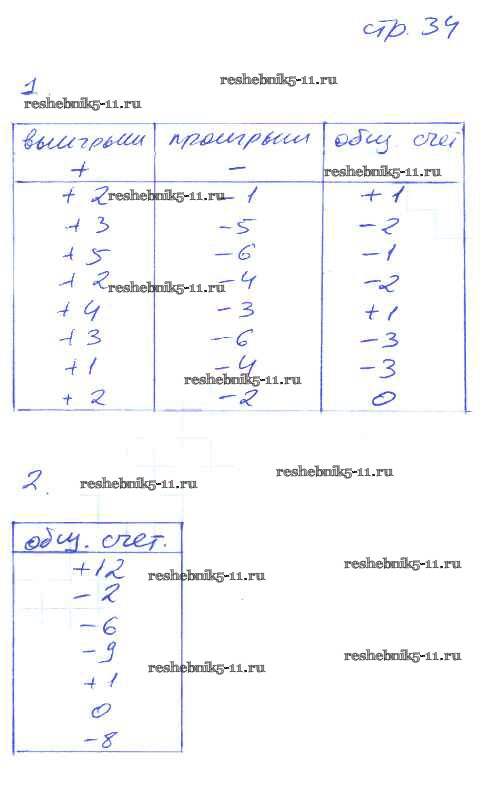 стр. 34
reshebnik5-11.ru
1.
reshebnik5-11.ru
выигрыши проигрыши общ. счет
+ − reshebnik5-11.ru
+ 2 reshebnik5-11.ru − 1 + 1
+ 3 − 5 − 2
+ 5 − 6 − 1
+ 2 reshebnik5-11.ru − 4 − 2
+ 4 − 3 + 1
+ 3 − 6 − 3
+ 1 − 4 − 3
reshebnik5-11.ru
+ 2 − 2 0
reshebnik5-11.ru
2. reshebnik5-11.ru
общ. счет.
+12 reshebnik5-11.ru reshebnik5-11.ru
− 2
− 6
− 9 reshebnik5-11.ru reshebnik5-11.ru
+ 1
0
− 8